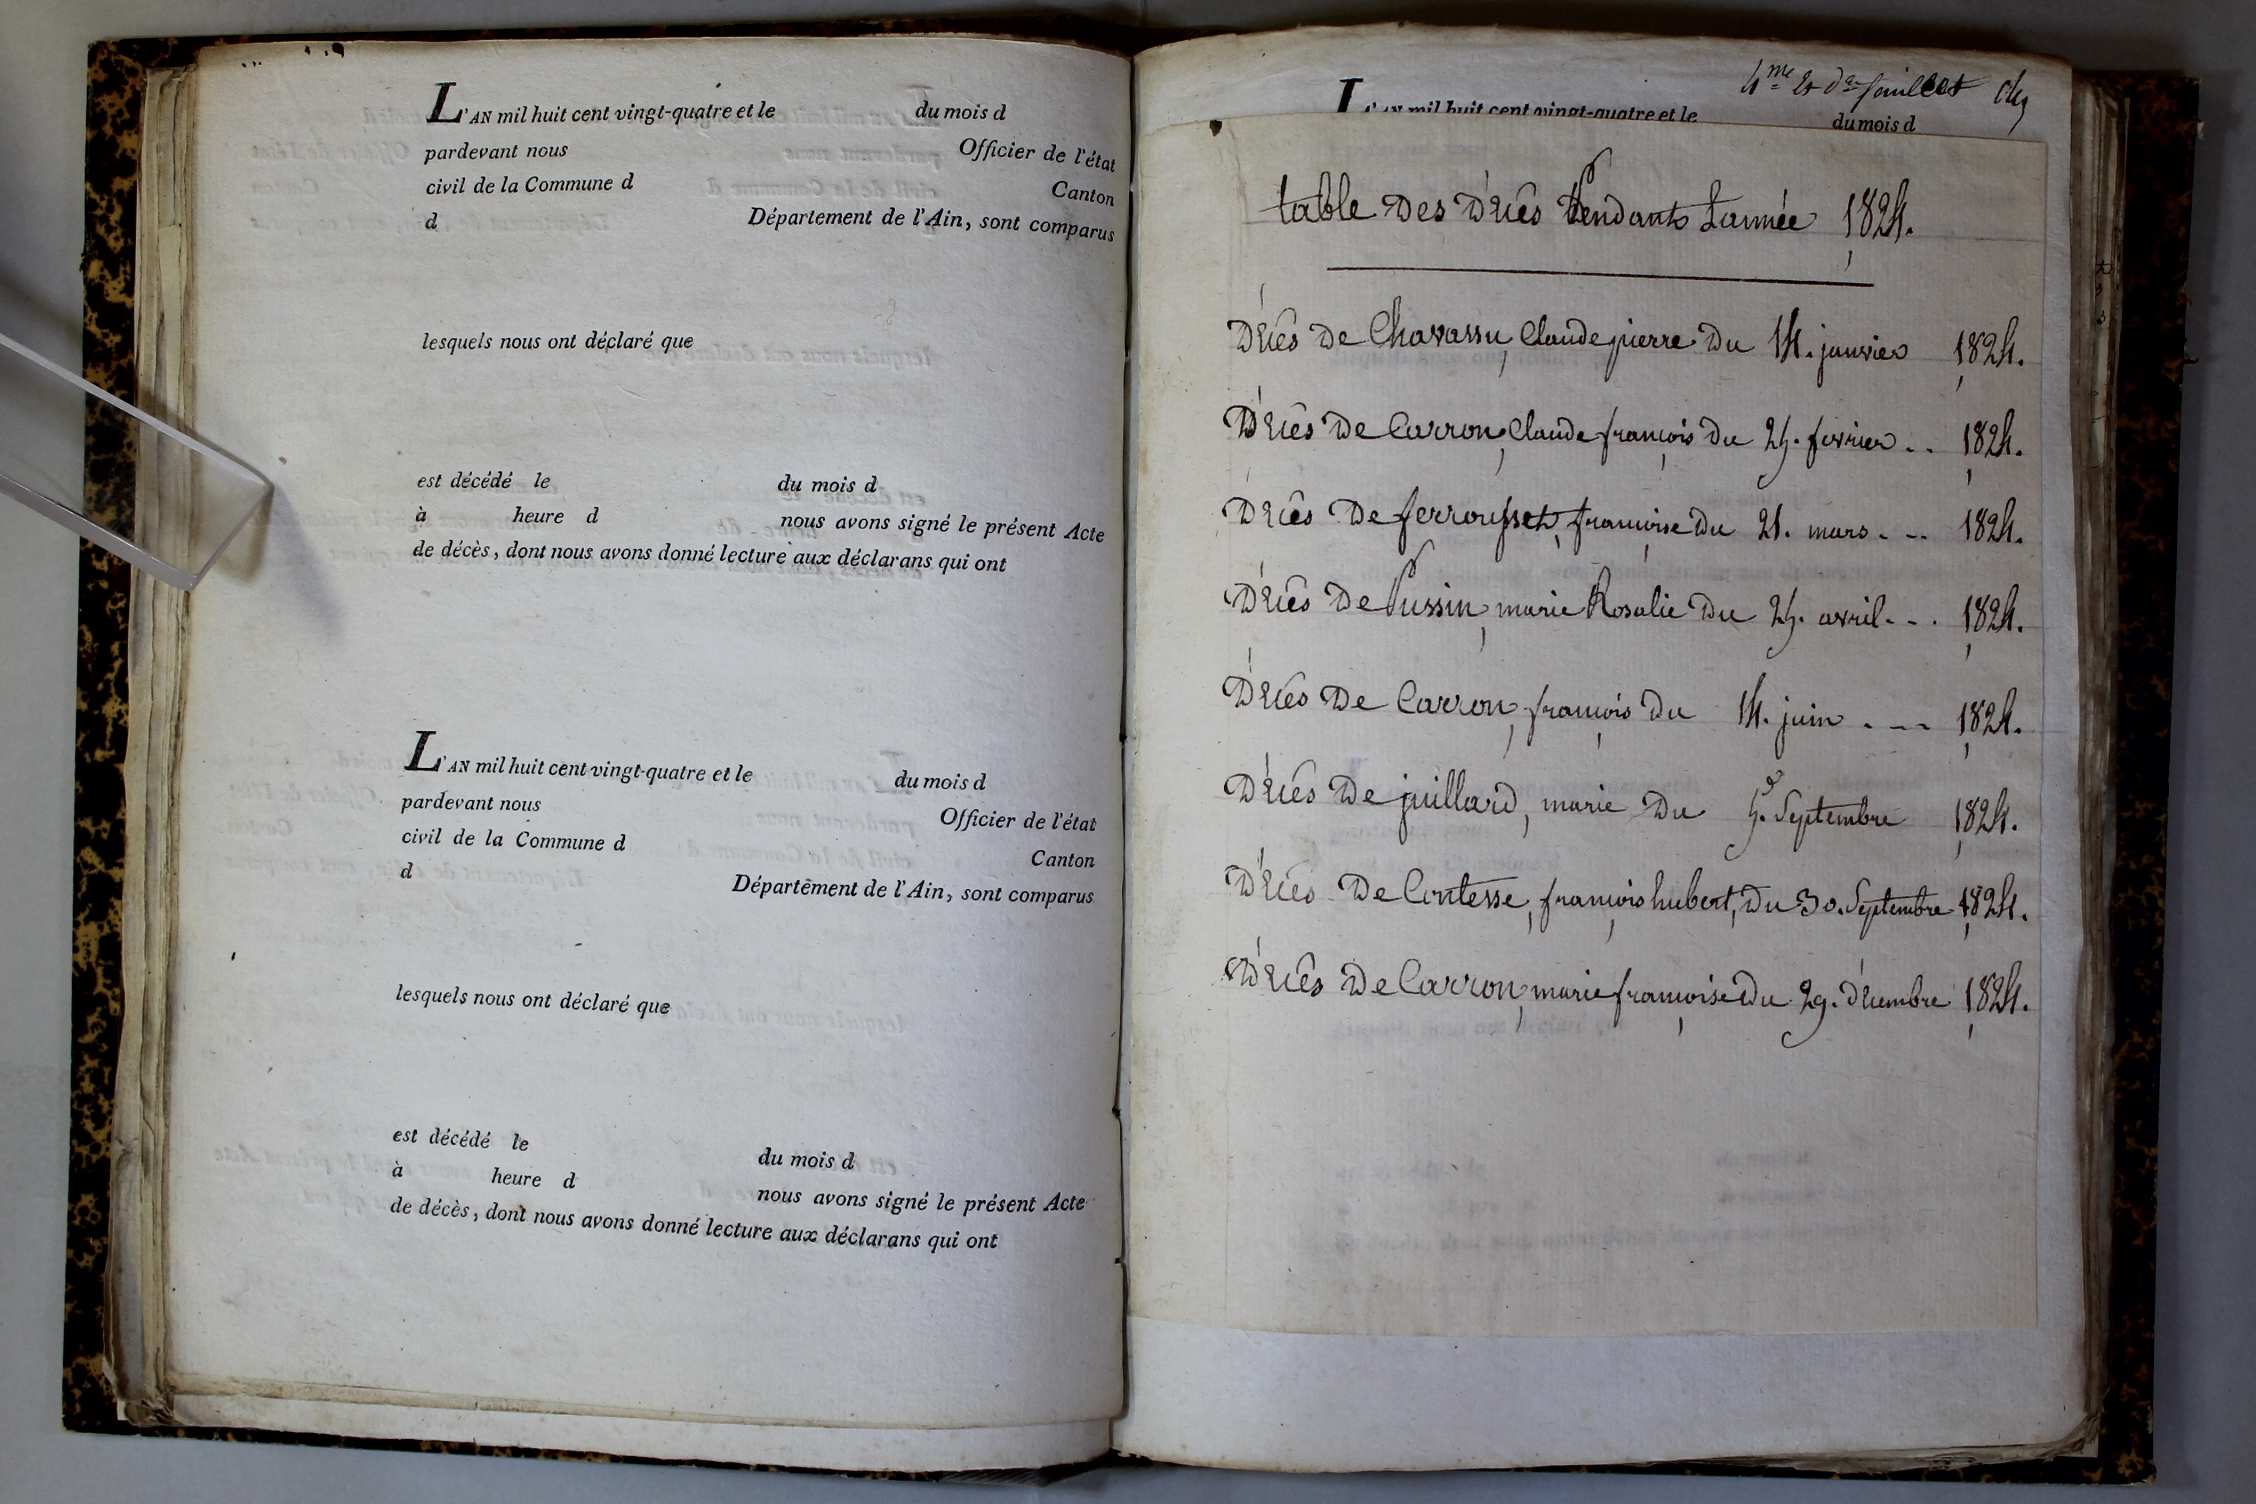 L'AN mil huit cent vingt-quatre et le du mois d
pardevant nous Officier de l'état
civil de la Commune d Canton
d Département de l'Ain, sont comparus
lesquels nous ont déclaré que
est décédé le du mois d
à heure d nous avons signé le présent Acte
de décès, dont nous avons donné lecture aux déclarans qui ont
L'AN mil huit cent vingt-quatre et le du mois d
pardevant nous Officier de l'état
civil de la Commune d Canton
d Département de l'Ain, sont comparus
lesquels nous ont déclaré que
est décédé le du mois d
à heure d nous avons signé le présent Acte
de décès, dont nous avons donné lecture aux déclarans qui ont
4me et der feuillet
L'AN mil huit cent vingt-quatre et le du mois d
table des décès pendant L'année 1824.
Décès de Chavassu, Claude pierre du 14. janvier 1824.
Décès de Carron, Claude françois du 25. fevrier .. 1824.
Décès de ferrousset, françoise du 21. mars . .. 1824.
Décès de Pussin, marie Rosalie du 25. avril . . . 1824.
Décès de Carron, françois du 14. juin . . . 1824.
Décès de juillard, marie du 5. Septembre 1824.
Décès de Contesse, françois hubert, du 30. Septembre 1824.
Décès de Carron, marie françoise du 29. décembre 1824.